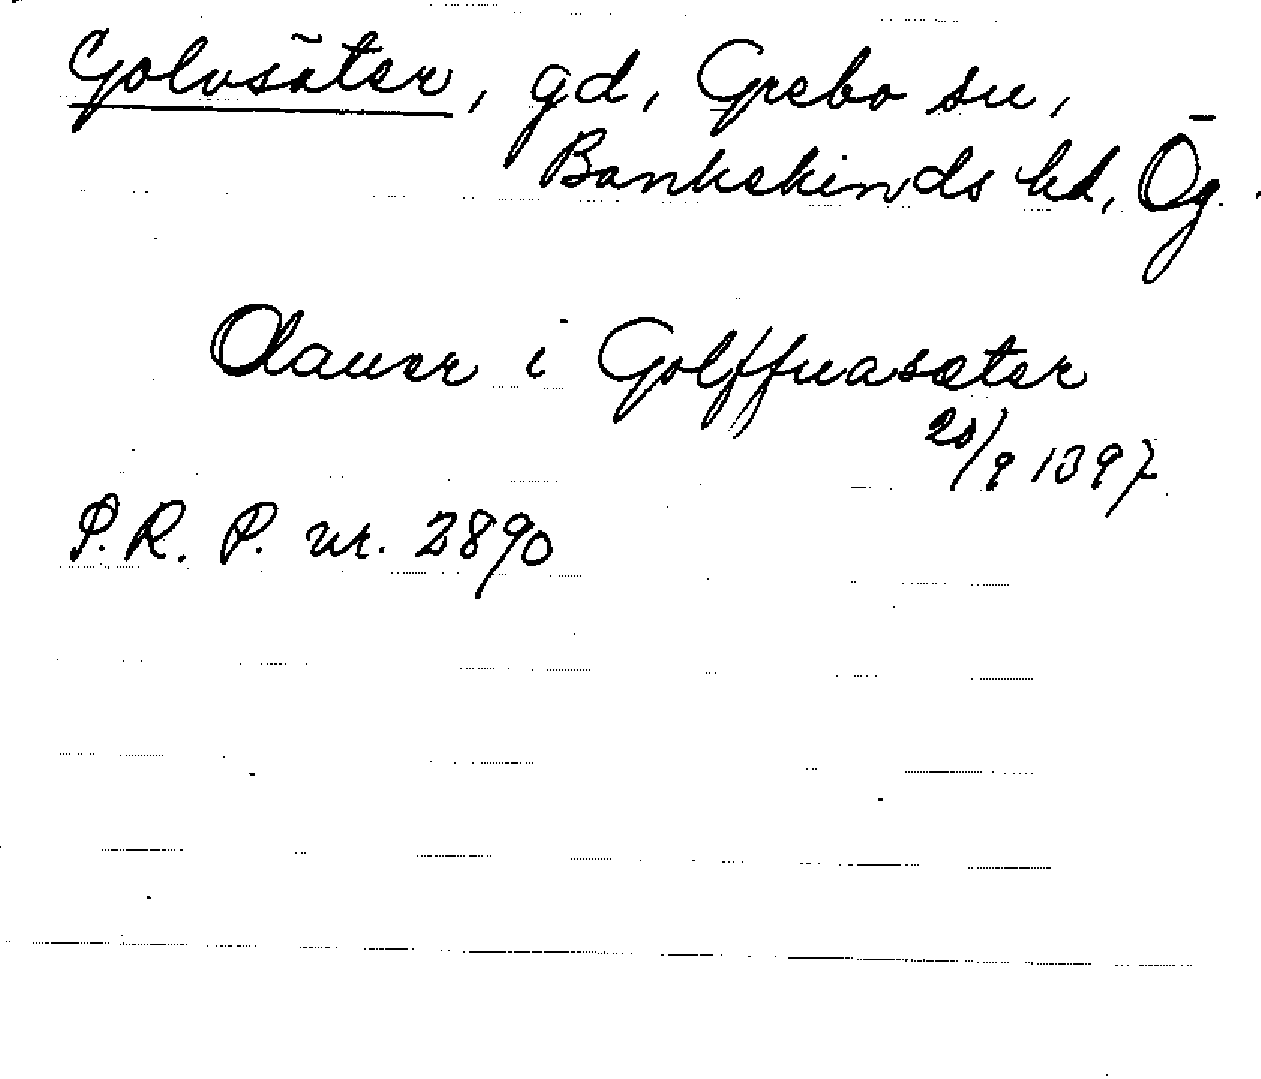 Golvsäter, gd, Grebo sn,
Bankekinds hd, Ög.
Olauer i Golffuasæter
20/9 1397
P.R. P. nr. 2890